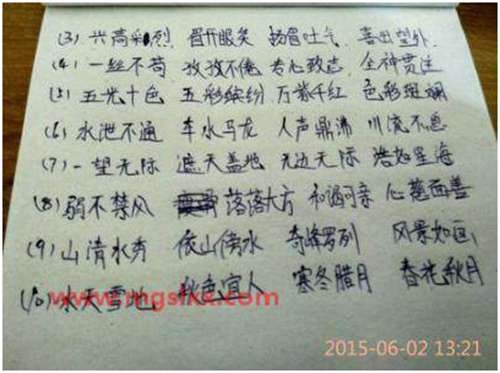 (3) 兴高彩烈 眉开眼笑 扬眉吐气 喜出望外
(4) 一丝不苟 孜孜不倦 专心致志 全神贯注
(5) 五光十色 五彩缤纷 万紫千红 色彩斑斓
(6) 水泄不通 车水马龙 人声鼎沸 川流不息
(7) 一望无际 遮天盖地 无边无际 浩如星海
(8) 弱不禁风 落落大方 和谒可亲 心慈面善
(9) 山清水秀 依山傍水 奇峰罗列 风景如画
(10) 冰天雪地 秋色宜人 寒冬腊月 春花秋月
2015-06-02 13:21